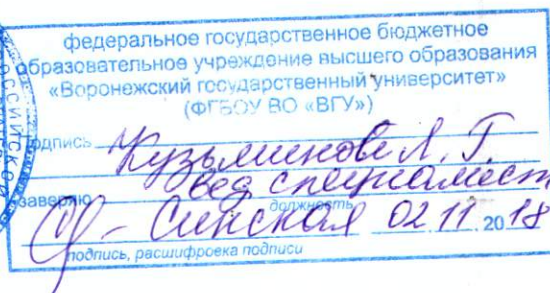 федеральное государственное бюджетное
образовательное учреждение высшего образования
«Воронежский государственный университет»
(ФГБОУ ВО «ВГУ»)
подпись Кузьменкова Л. Г.
вед специалист
заверяю
должность
Синская 02 11 2018
подпись, расшифровка подписи